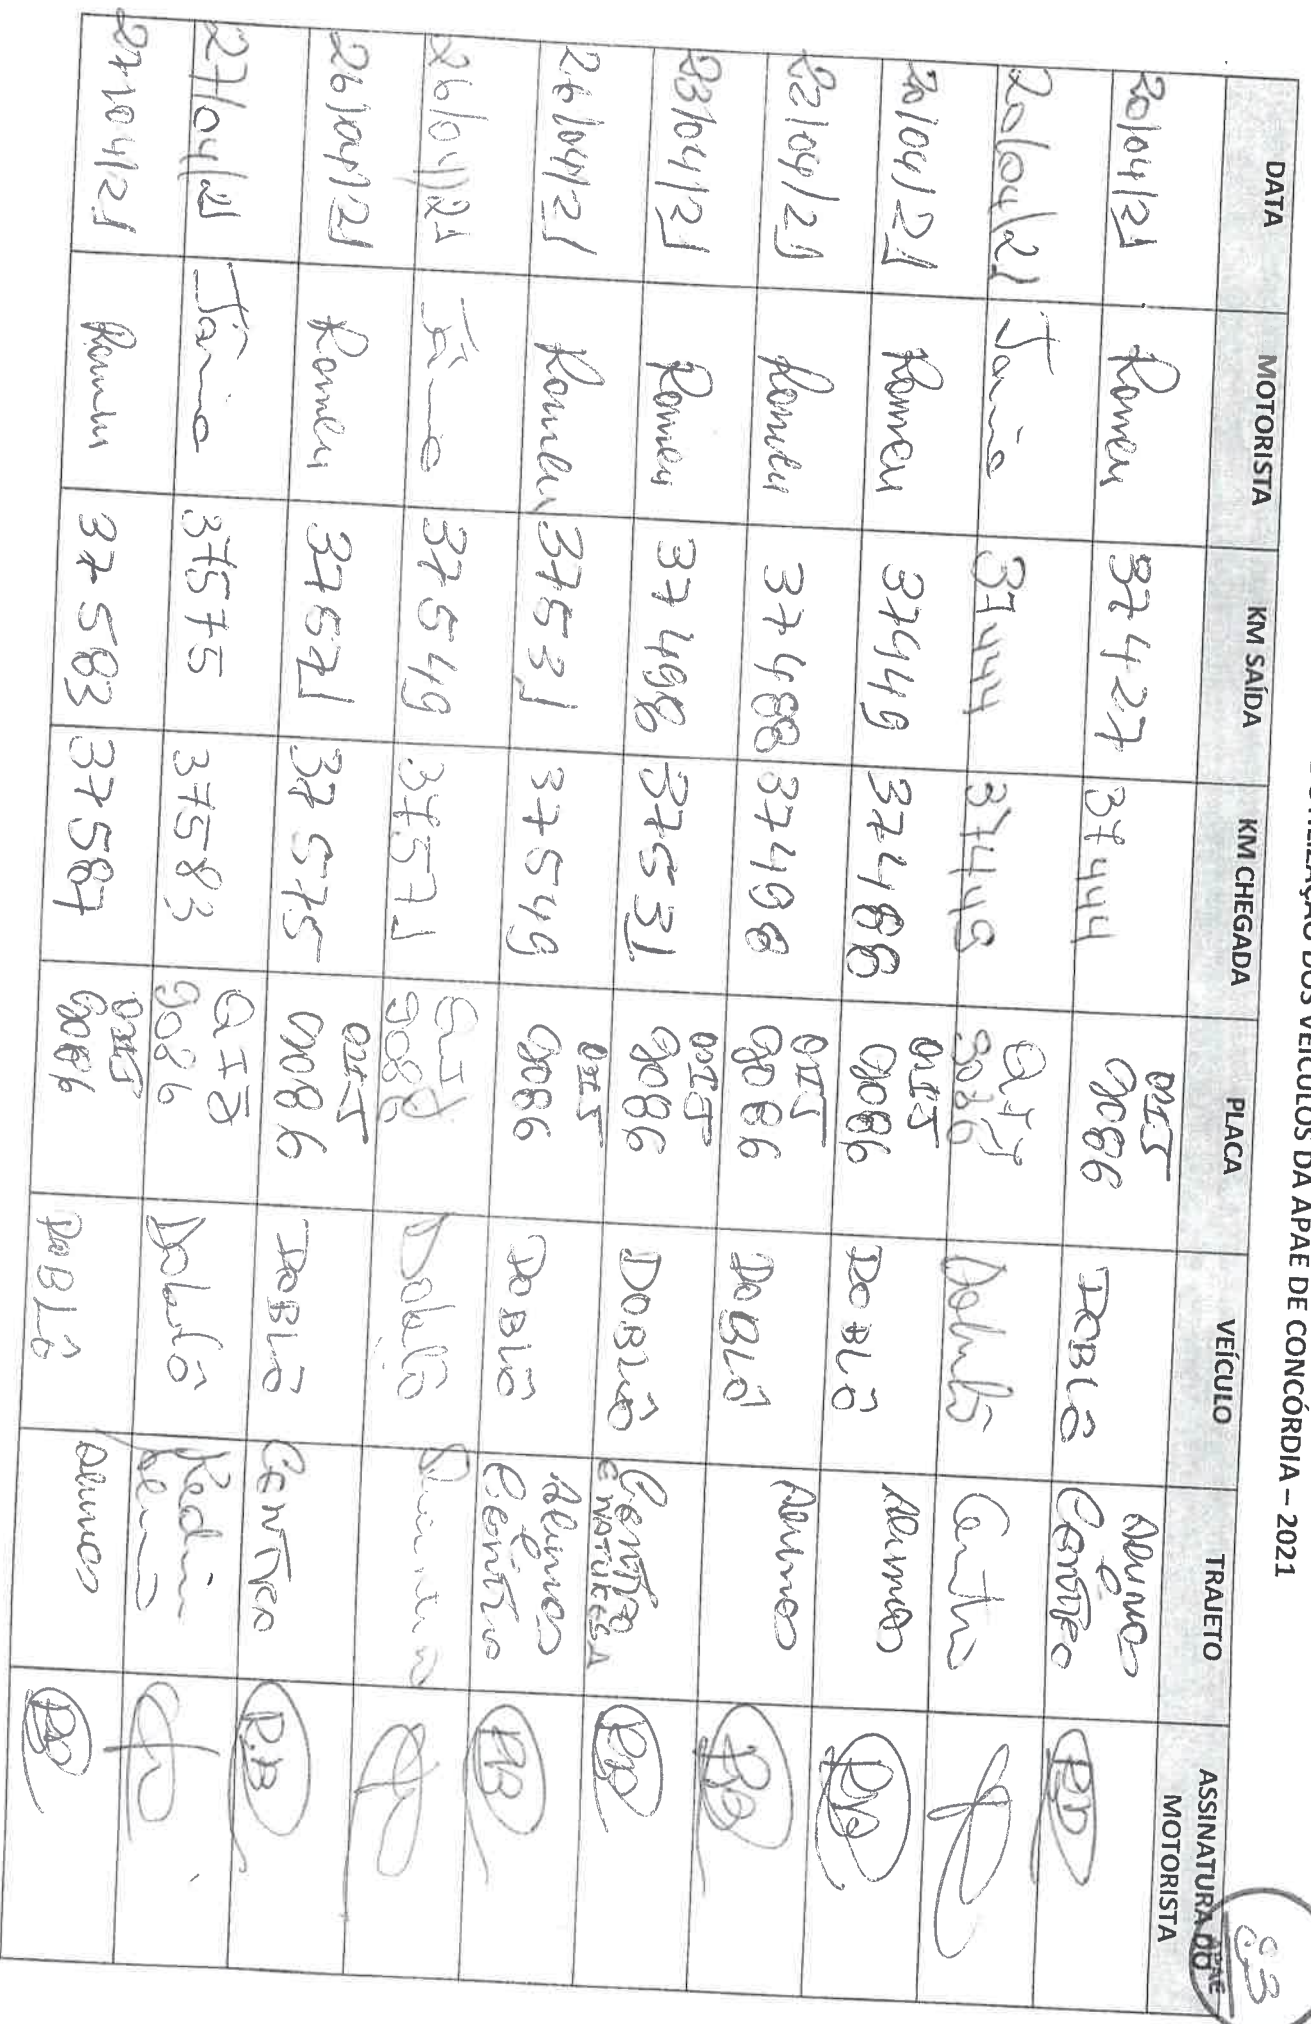 UTILIZAÇÃO DOS VEÍCULOS DA APAE DE CONCÓRDIA – 2021
83
APAE
DATA MOTORISTA KM SAÍDA KM CHEGADA PLACA VEÍCULO TRAJETO ASSINATURA DO MOTORISTA
20/04/21 Romeu 37427 37444 QIJ 9086 DOBLÔ Alunos e CENTRO RB
20/04/21 Jânio 37444 37449 QIJ 9086 Doblô Centro
20/04/21 Romeu 37449 37488 QIJ 9086 DOBLÔ Alunos
22/04/21 Romeu 37488 37498 QIJ 9086 DOBLÔ Alunos
23/04/21 Romeu 37498 37531 QIJ 9086 DOBLÔ Centro E NATUREZA
26/04/21 Romeu 37531 37549 QIJ 9086 DOBLÔ Alunos e Centro RB
26/04/21 Jânio 37549 37571 QIJ 9086 Doblô
26/04/21 Romeu 37571 37575 QIJ 9086 DOBLÔ CENTRO R.B
27/04/21 Jânio 37575 37583 QIJ 9086 Doblô
27/04/21 Romeu 37583 37587 QIJ 9086 DOBLÔ Alunos